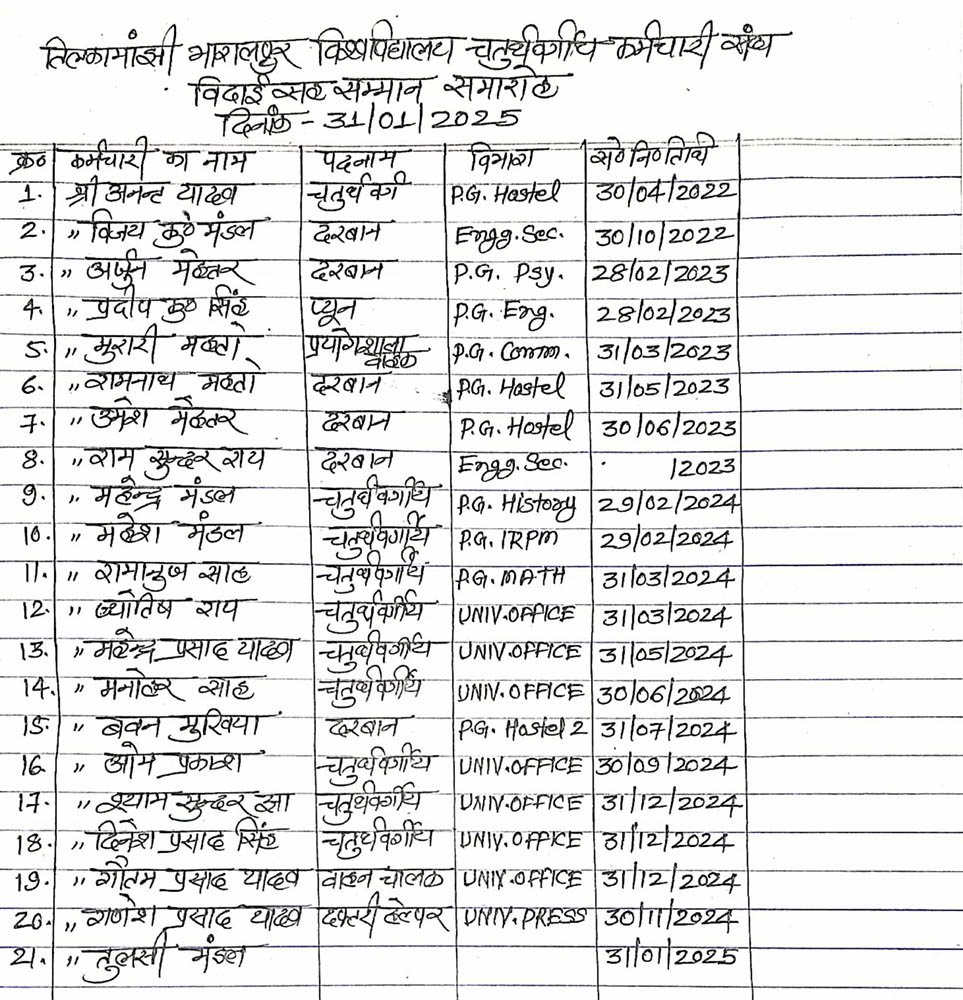 तिलकामांझी भागलपुर विश्वविद्यालय चतुर्थवर्गीय कर्मचारी संघ
विदाई सह सम्मान समारोह
दिनांक - 31/01/2025
क्र० कर्मचारी का नाम पदनाम विभाग से० नि० तिथि
1. श्री अनन्त यादव चतुर्थ वर्ग P.G. Hostel 30/04/2022
2. ,, विजय कु० मंडल दरबान Engg. Sec. 30/10/2022
3. ,, अर्जुन मेहतर दरबान P.G. Psy. 28/02/2023
4. ,, प्रदीप कु० सिंह प्यून P.G. Eng. 28/02/2023
5. ,, मुरारी महतो प्रयोगशाला वाहक P.G. Comm. 31/03/2023
6. ,, रामनाथ महतो दरबान P.G. Hostel 31/05/2023
7. ,, उमेश मेहतर दरबान P.G. Hostel 30/06/2023
8. ,, राम सुन्दर राय दरबान Engg. Sec. . /2023
9. ,, महेन्द्र मंडल चतुर्थवर्गीय P.G. History 29/02/2024
10. ,, महेश मंडल चतुर्थवर्गीय P.G. IRPM 29/02/2024
11. ,, रामानुज साह चतुर्थवर्गीय P.G. MATH 31/03/2024
12. ,, ज्योतिष राय चतुर्थवर्गीय UNIV. OFFICE 31/03/2024
13. ,, महेन्द्र प्रसाद यादव चतुर्थवर्गीय UNIV. OFFICE 31/05/2024
14. ,, मनोहर साह चतुर्थवर्गीय UNIV. OFFICE 30/06/2024
15. ,, बवन मुखिया दरबान P.G. Hostel 2 31/07/2024
16. ,, ओम प्रकाश चतुर्थवर्गीय UNIV. OFFICE 30/09/2024
17. ,, श्याम सुन्दर झा चतुर्थवर्गीय UNIV. OFFICE 31/12/2024
18. ,, दिनेश प्रसाद सिंह चतुर्थवर्गीय UNIV. OFFICE 31/12/2024
19. ,, गौतम प्रसाद यादव वाहन चालक UNIV. OFFICE 31/12/2024
20. ,, गणेश प्रसाद यादव दफ्तरी हेल्पर UNIV. PRESS 30/11/2024
21. ,, तुलसी मंडल 31/01/2025